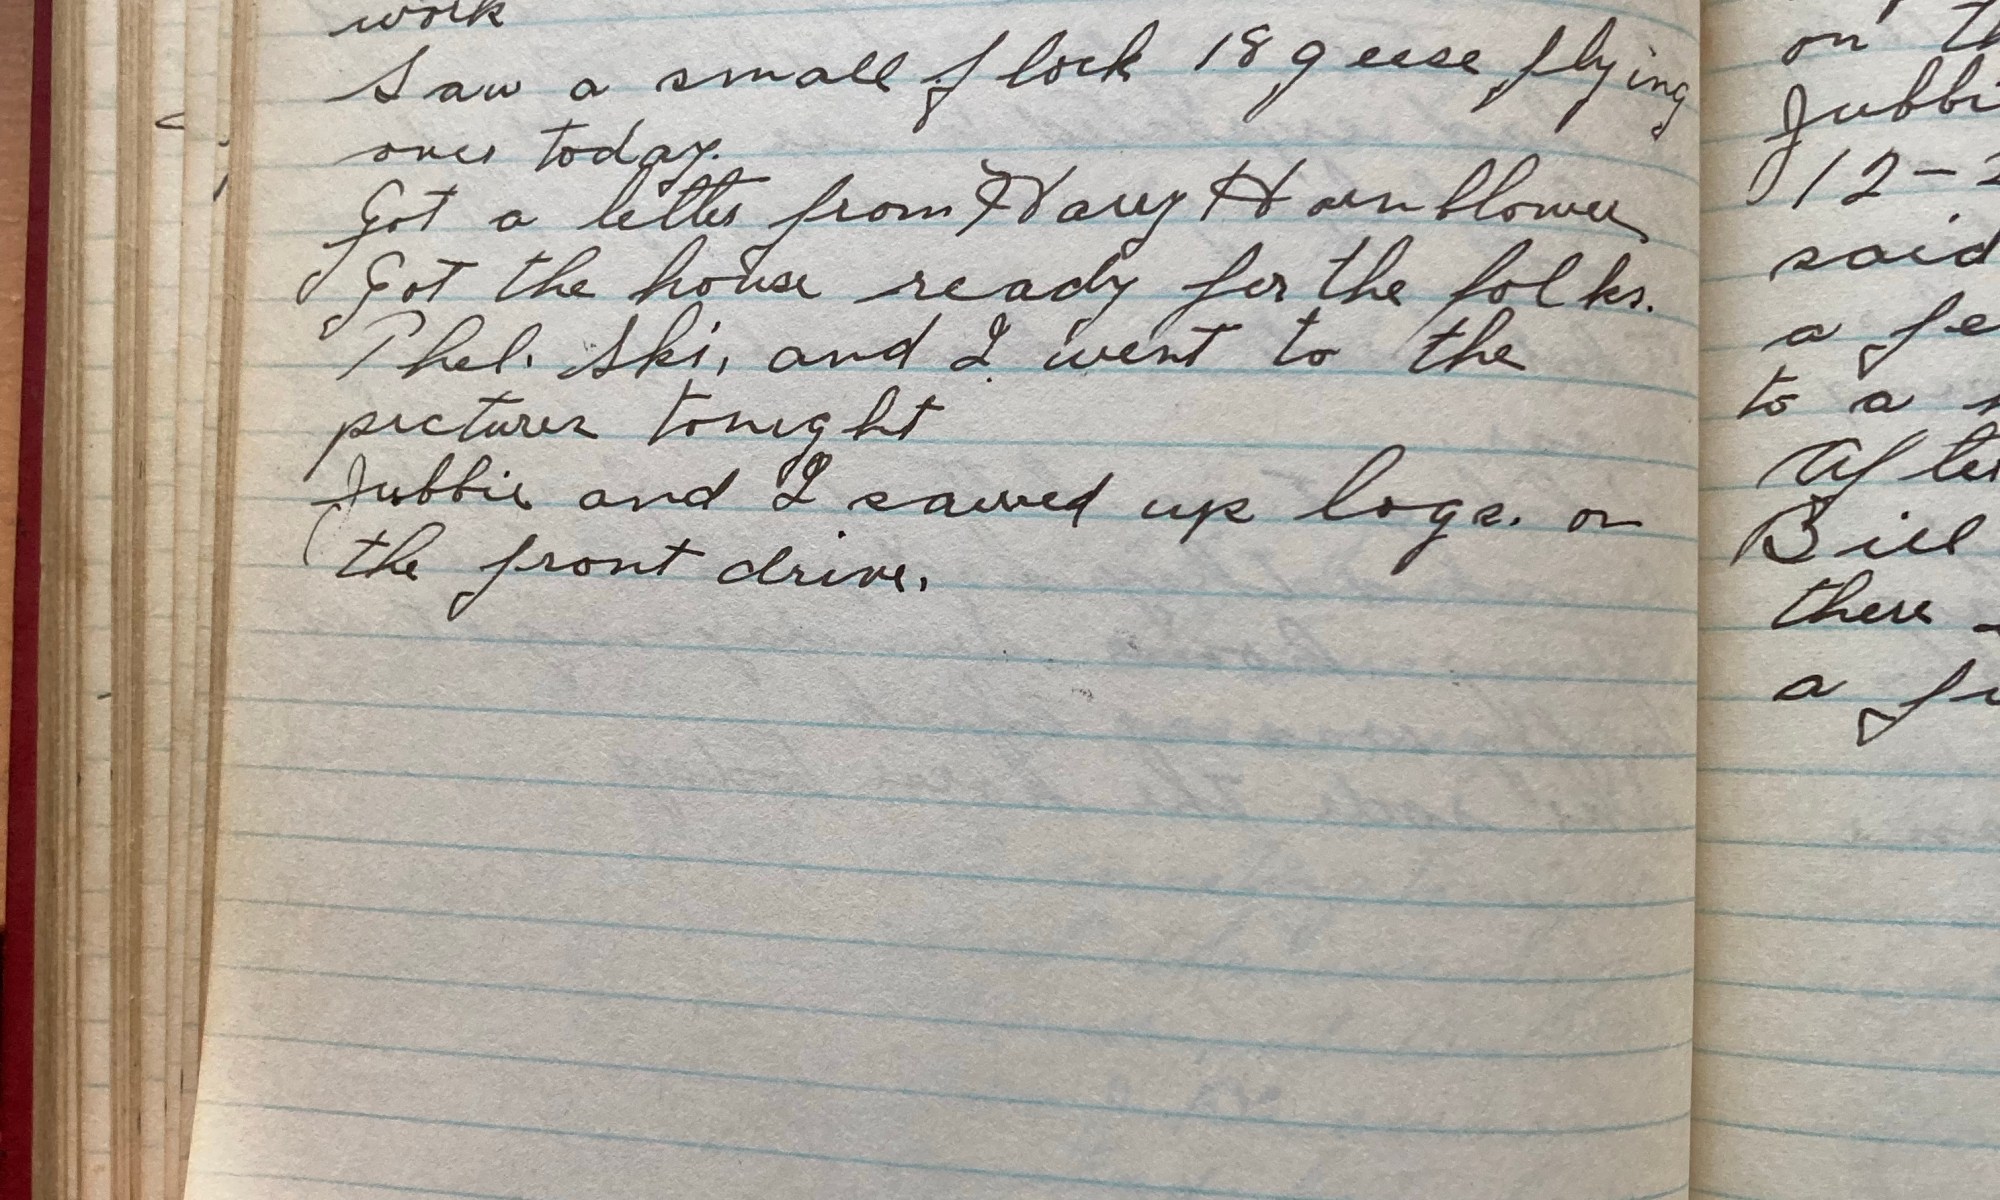 work
Saw a small flock 18 geese flying
over today.
Got a letter from Harry Hornblower
Got the house ready for the folks.
Phel. Ski, and I went to the
pictures tonight
Jubbie and I sawed up logs. on
the front drive.
on th
Jubbi
12-2
said
a fe
to a
After
Bill
there
a fu